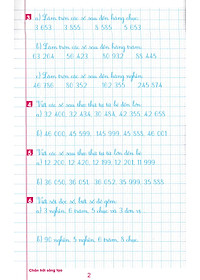 3 a) Làm tròn các số sau đến hàng chục:
3 653 3 555 5 555 5 653
b) Làm tròn các số sau đến hàng trăm:
63 204 50 423 50 932 55 445
c) Làm tròn các số sau đến hàng nghìn:
46 756 50 352 102 355 245 574
4 Viết các số sau theo thứ tự từ bé đến lớn:
a) 32 400, 32 434, 30 484, 42 355, 42 655
b) 46 000, 45 599, 45 555, 46 001
5 Viết các số sau theo thứ tự từ lớn đến bé:
a) 12 200, 12 420, 12 199, 12 201, 11 999
b) 36 050, 36 051, 36 052, 35 999, 35 555
6 Viết rồi đọc số, biết số đó gồm:
a) 3 nghìn, 6 trăm, 5 chục và 7 đơn vị
b) 90 nghìn, 5 nghìn, 6 trăm, 8 chục
Chân trời sáng tạo
2